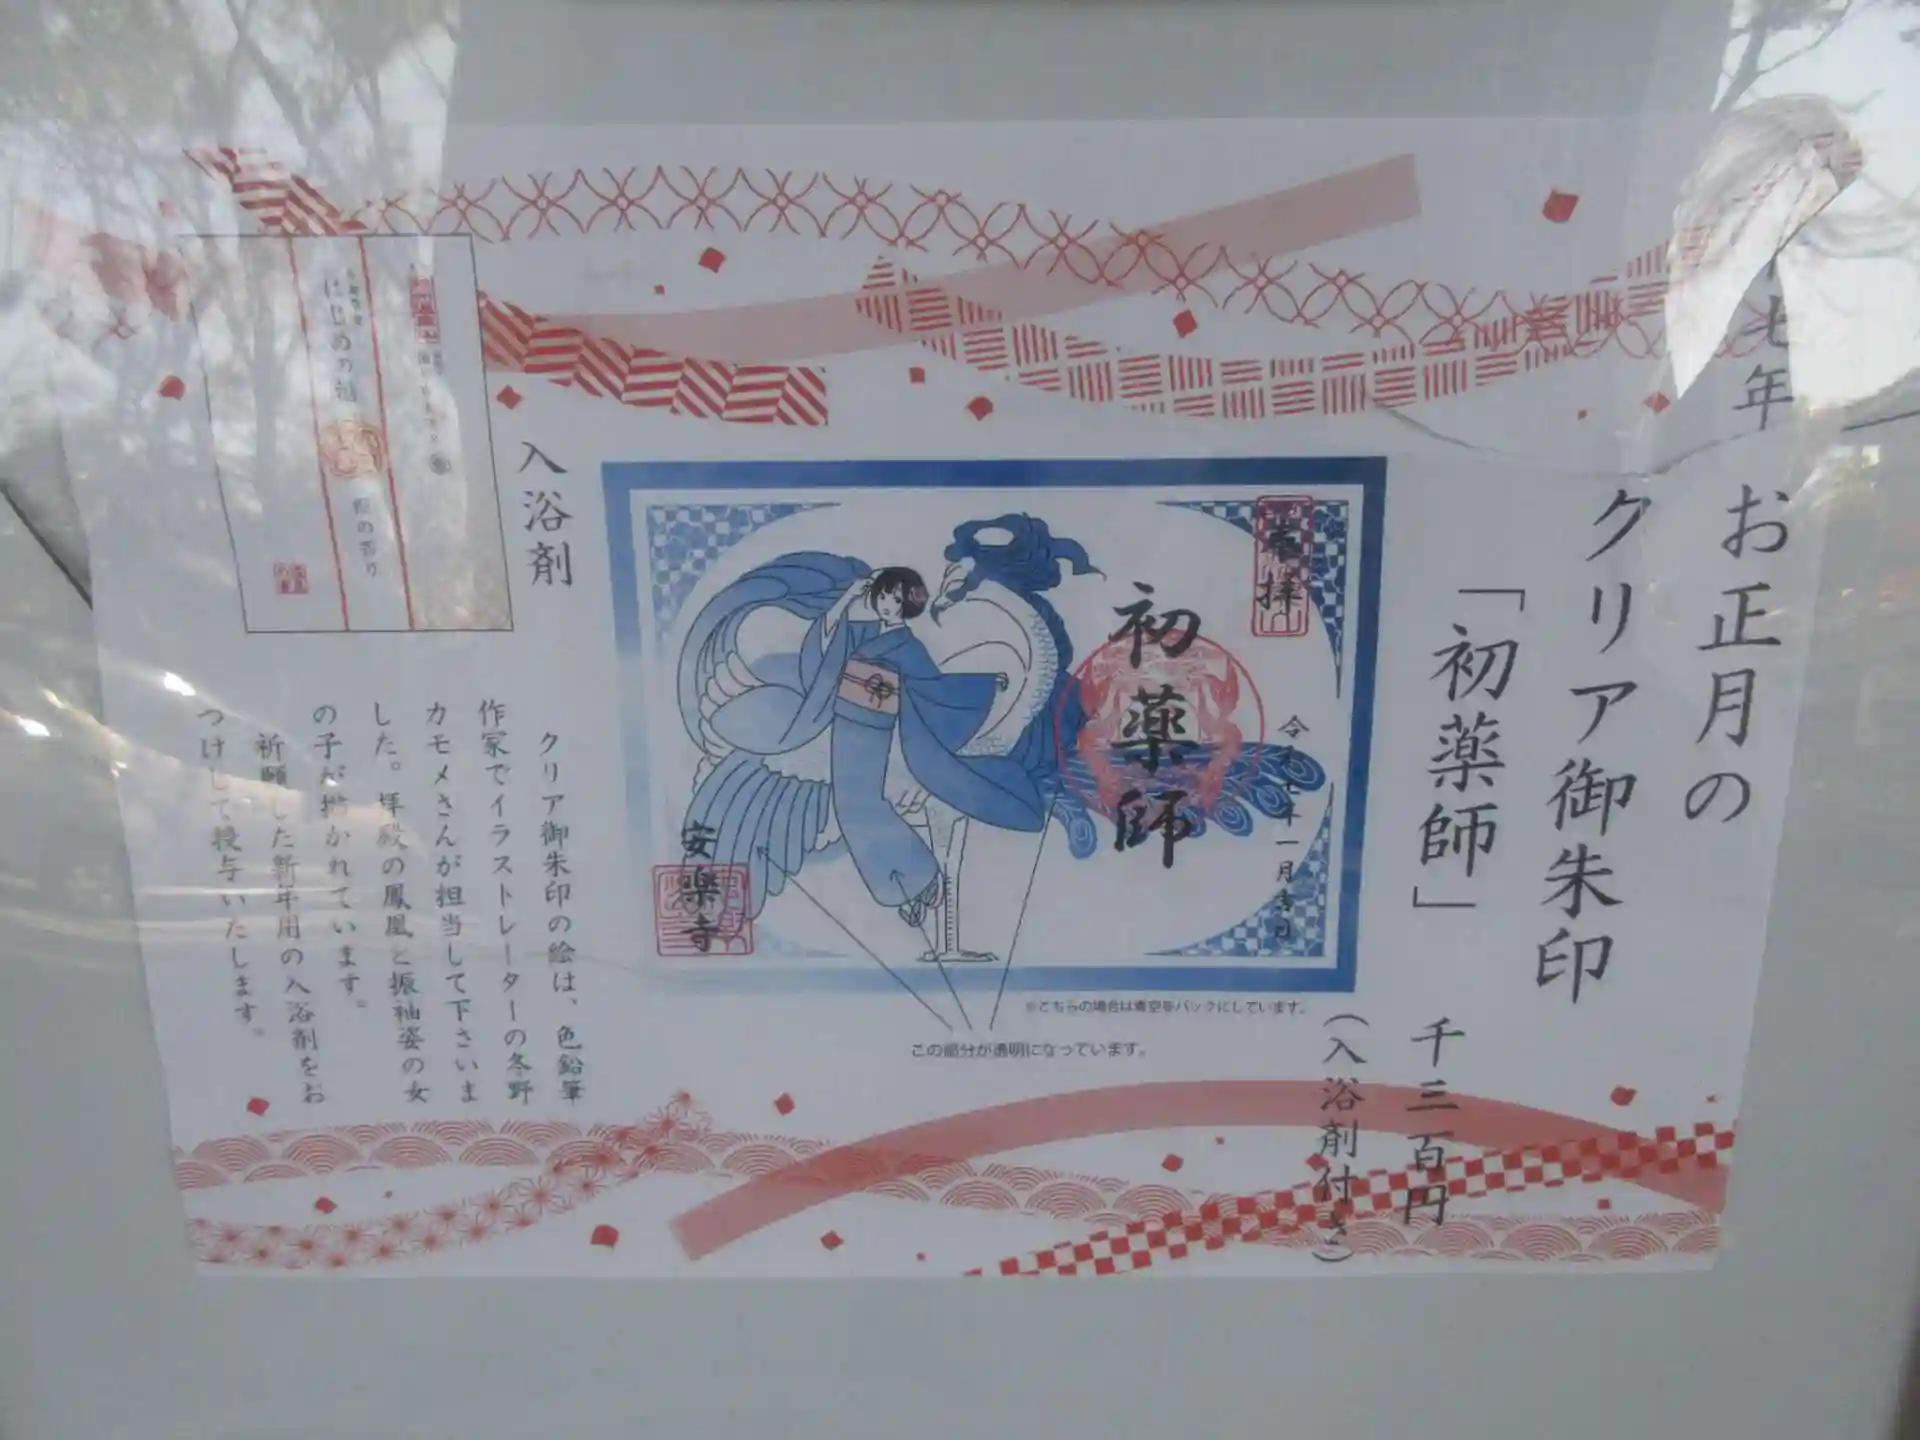 七年
お正月の
クリア御朱印
「初薬師」
千三百円
（入浴剤付き）
奉拝
初薬師
令和七年一月吉日
安楽寺
※こちらの場合は青空をバックにしています。
この部分が透明になっています。
入浴剤
はじめの福
桜の香り
クリア御朱印の絵は、色鉛筆
作家でイラストレーターの冬野
カモメさんが担当して下さいま
した。拝殿の鳳凰と振袖姿の女
の子が描かれています。
祈願した新年用の入浴剤をお
つけして授与いたします。